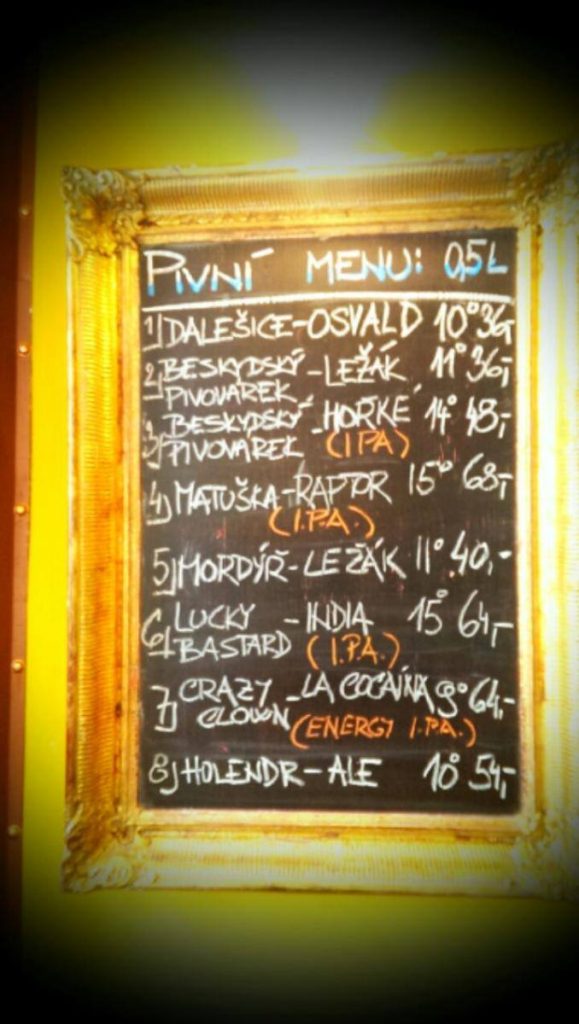 PIVNÍ MENU: 0,5L
1) DALEŠICE-OSVALD 10° 36,-
2) BESKYDSKÝ PIVOVÁREK -LEŽÁK 11° 36,-
3) BESKYDSKÝ PIVOVÁREK -HOŘKÉ 14° 48,-
(IPA)
4) MATUŠKA-RAPTOR 15° 68,-
(I.P.A.)
5) MORDÝŘ-LEŽÁK 11° 40,-
6) LUCKY -INDIA 15° 64,-
BASTARD (I.P.A.)
7) CRAZY -LA COCAÍNA 9° 64,-
CLOWN (ENERGY I.P.A.)
8) HOLENDR-ALE 10° 54,-